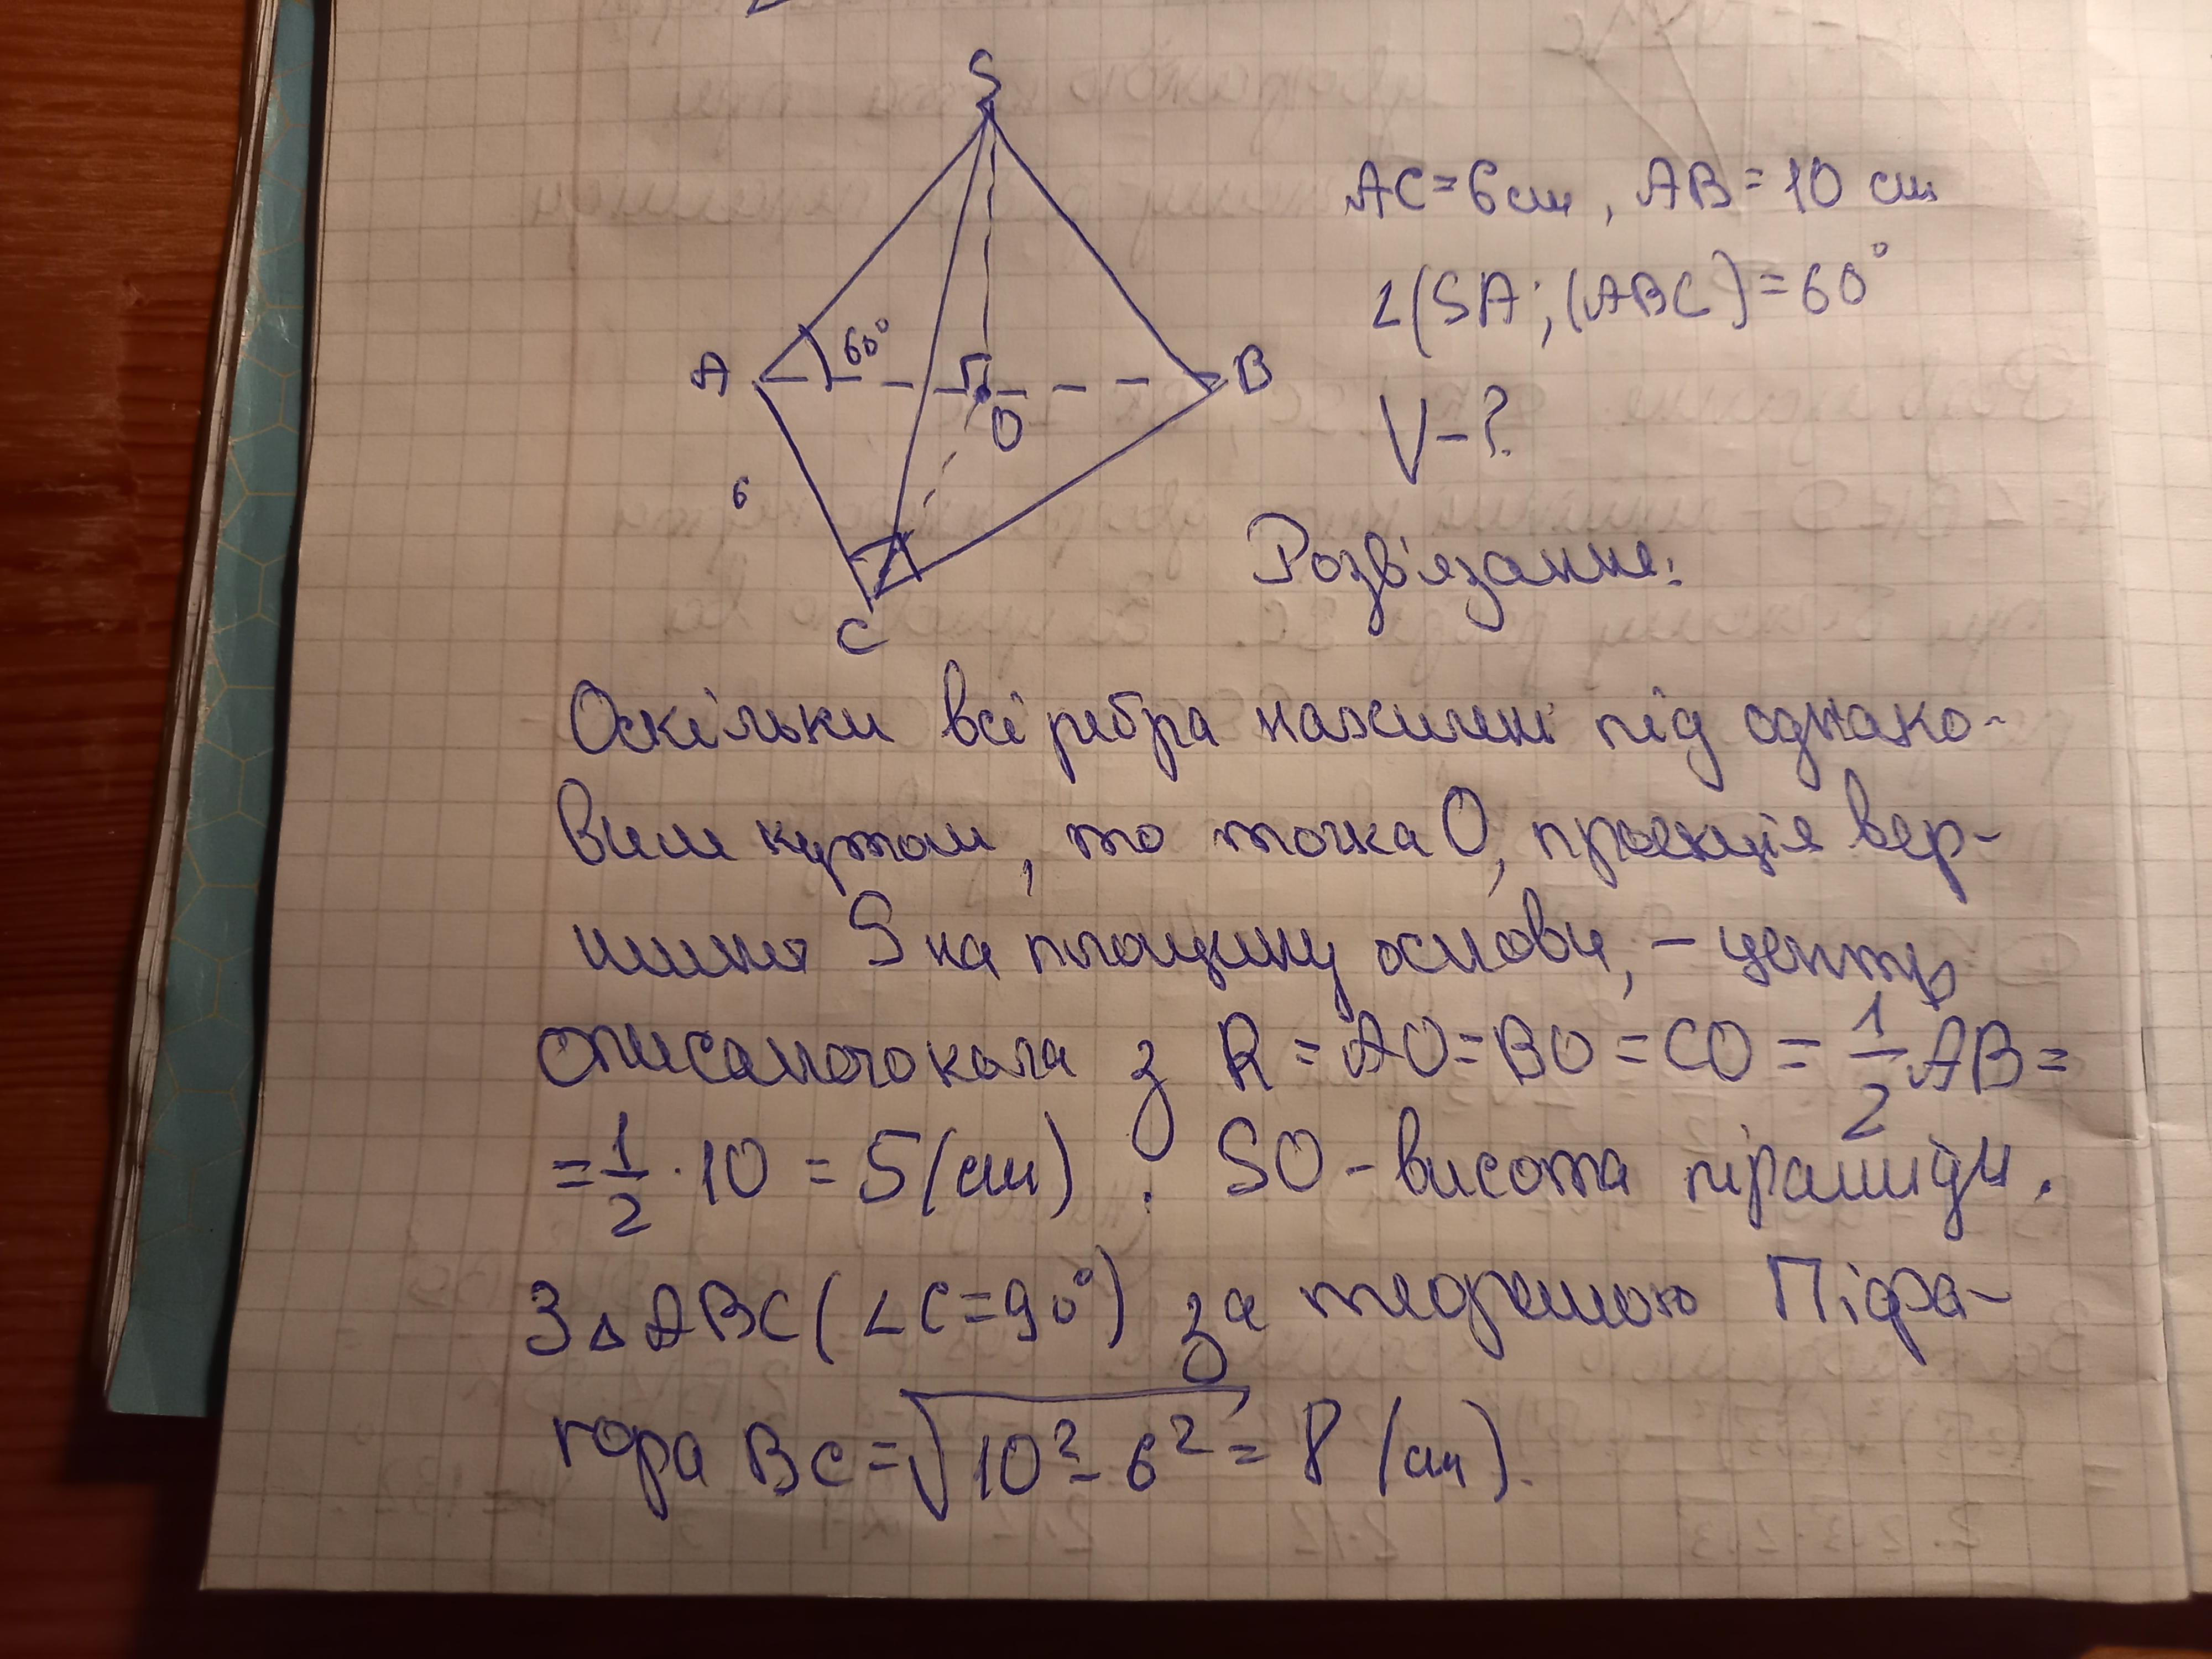 S
AC=6см, AB=10 см
∠(SA;(ABC)=60°
A 60° B
O
V-?
6
C
Розв'язання:
Оскільки всі ребра нахилені під однако-
вим кутом, то точка O, проекція вер-
шини S на площину основи, - центр
описаного кола з R=AO=BO=CO=1/2AB=
=1/2·10=5(см). SO-висота піраміди.
З △ABC(∠C=90°) за теоремою Піфа-
гора BC=√10²-6²=8(см).